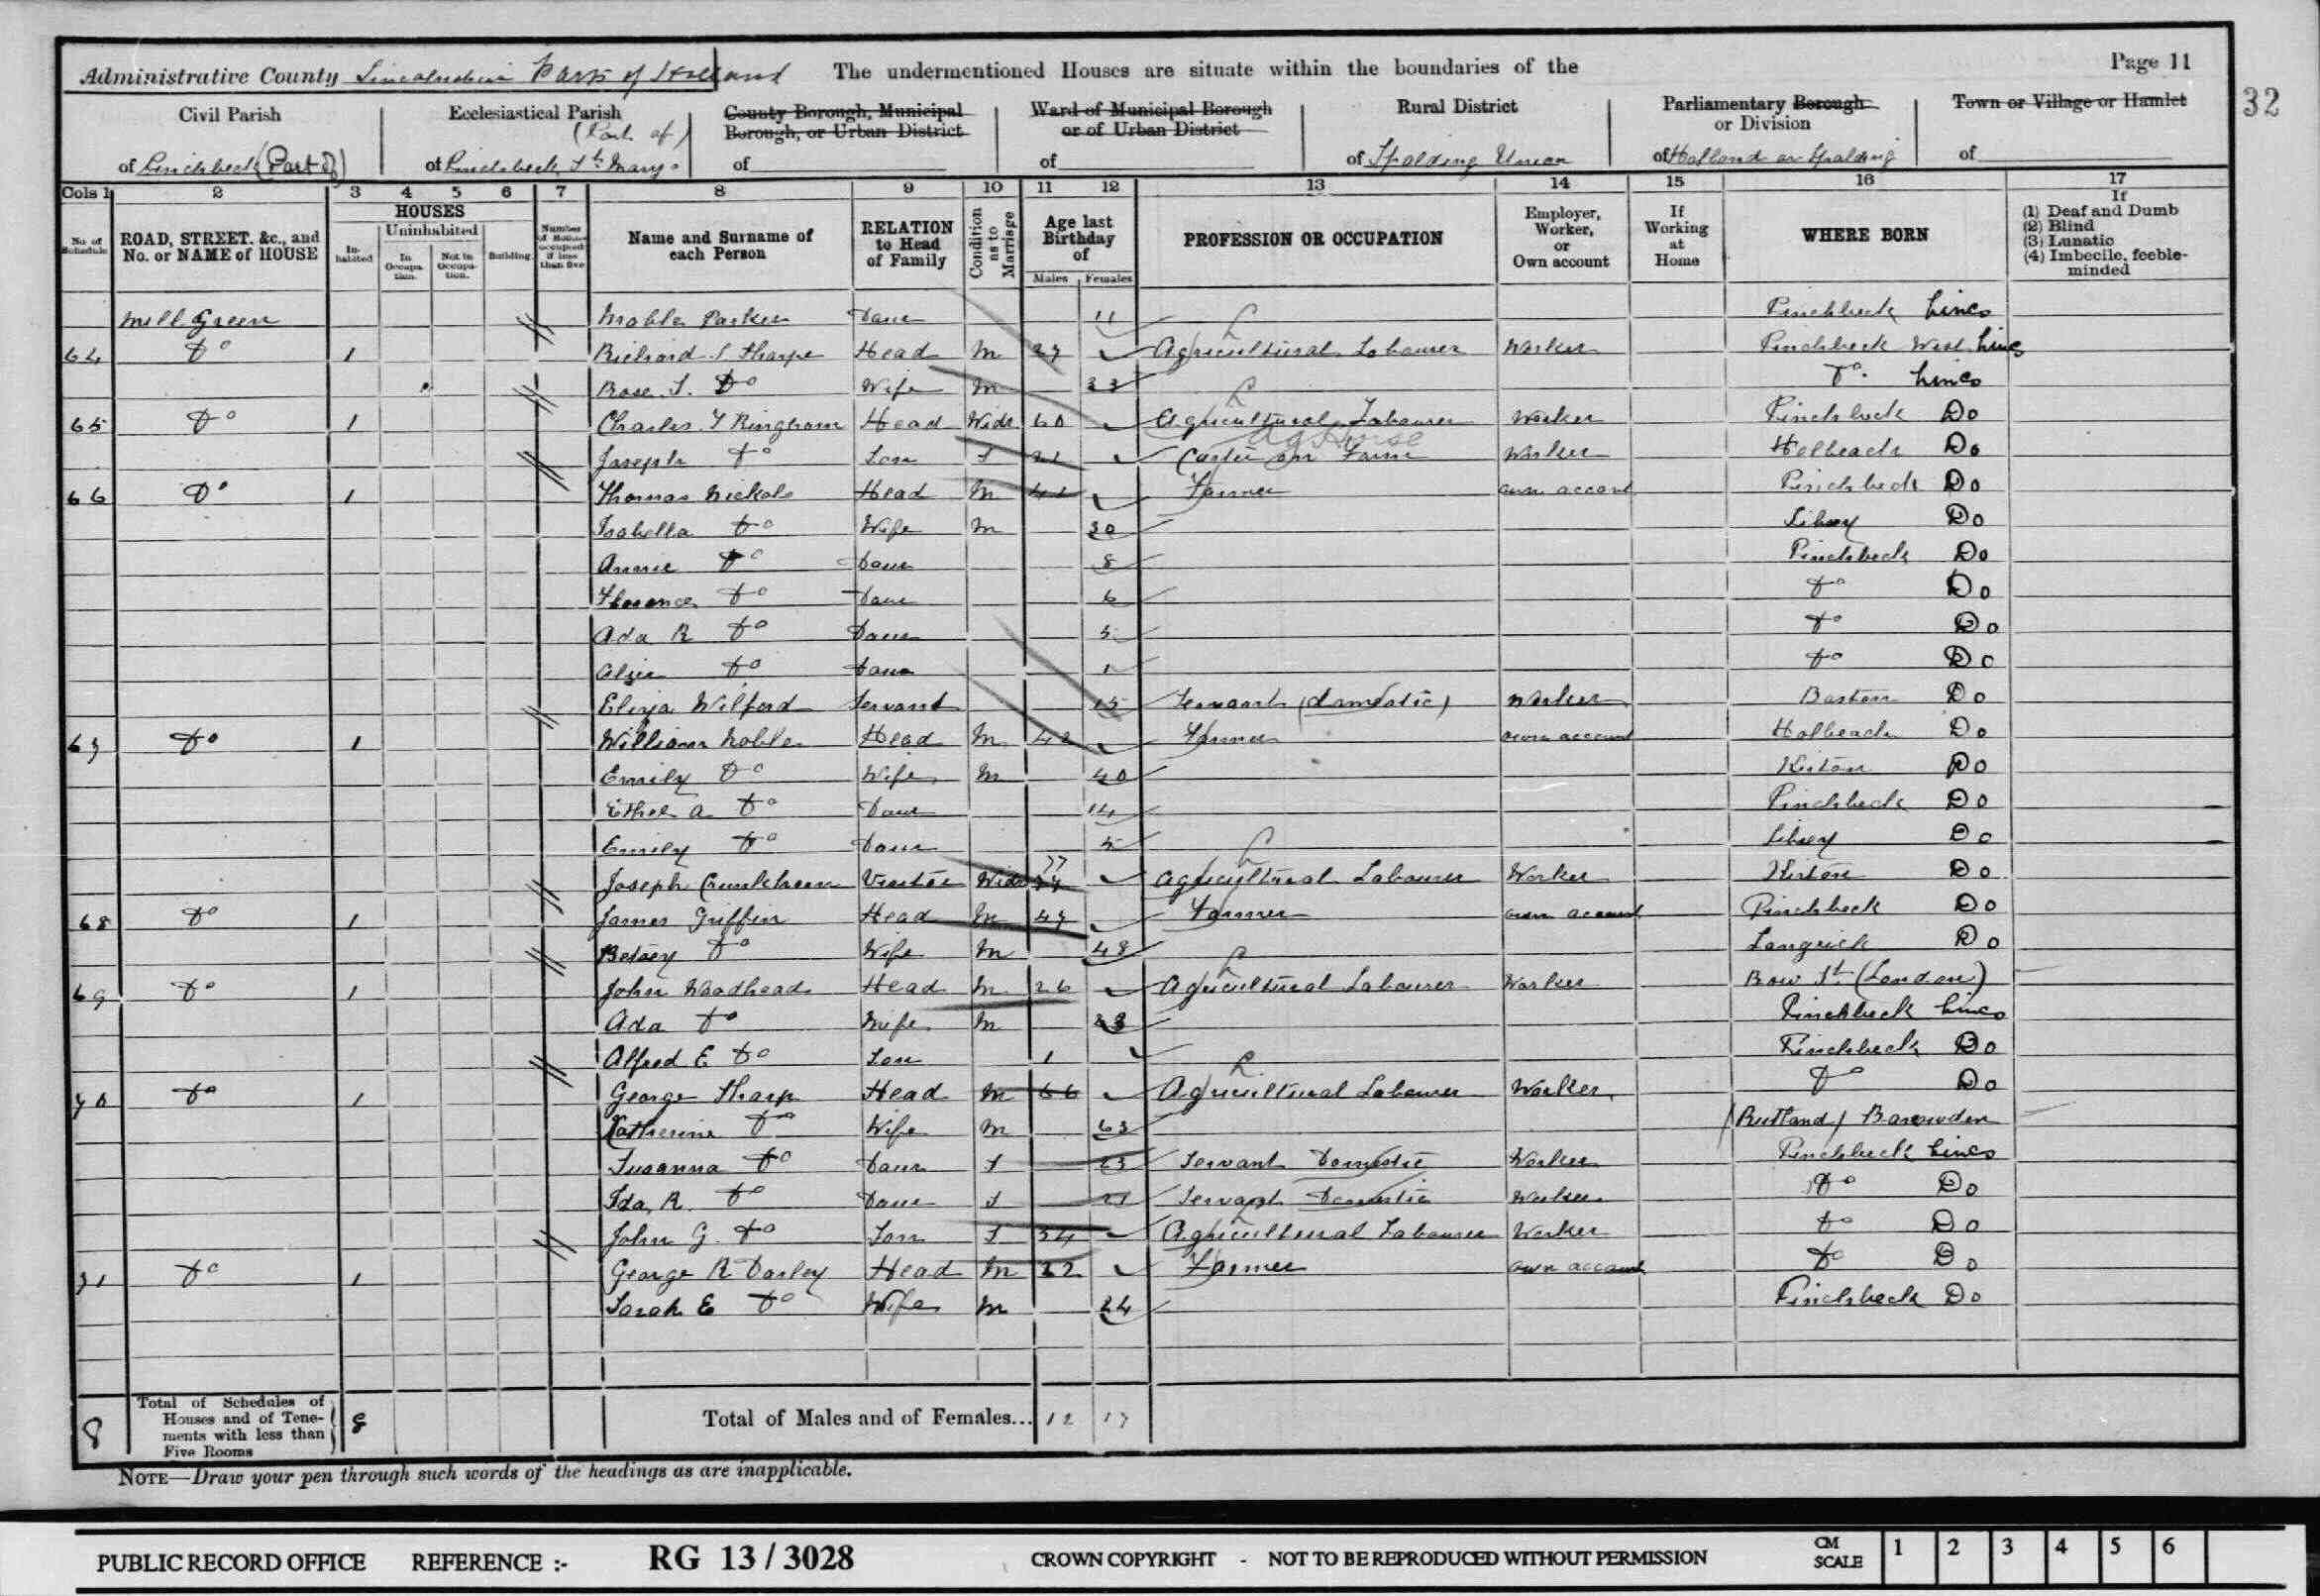 Administrative County Lincolnshire Parts of Holland The undermentioned Houses are situate within the boundaries of the Page 11
32
Civil Parish Ecclesiastical Parish County Borough, Municipal Borough, or Urban District Ward of Municipal Borough or of Urban District Rural District Parliamentary Borough or Division Town or Village or Hamlet
(Part of)
of Pinchbeck (Part of) of Pinchbeck St. Marys of of of Spalding Union of Holland or Spalding of
Cols 1 2 3 4 5 6 7 8 9 10 11 12 13 14 15 16 17
No. of Schedule ROAD, STREET, &c., and No. or NAME of HOUSE HOUSES Inhabited Uninhabited In Occupation. Not in Occupation. Building Number of Rooms occupied if less than five Name and Surname of each Person RELATION to Head of Family Condition as to Marriage Age last Birthday of Males Females PROFESSION OR OCCUPATION Employer, Worker, or Own account If Working at Home WHERE BORN If (1) Deaf and Dumb (2) Blind (3) Lunatic (4) Imbecile, feeble-minded
Mill Green Mable Parker Daur 11 Pinchbeck Lincs
64 Do 1 Richard S Sharpe Head M Agricultural Labourer Worker Pinchbeck West Lincs
Rose. S. Do Wife M Do. Lincs
65 Do 1 Charles T Ringham Head Widr 60 Agricultural Labourer Worker Pinchbeck Do
Ag Horse
Joseph Do Son S 21 Carter on Farm Worker Holbeach Do
66 Do 1 Thomas Nickols Head M Farmer own account Pinchbeck Do
Isabella Do Wife M 30 Sibsey Do
Annie Do Daur 8 Pinchbeck Do
Florence Do Daur 6 Do Do
Ada R Do Daur 5 Do Do
Do Daur 1 Do Do
Eliza Wilford Servant 15 Servant (domestic) Worker Boston Do
67 Do 1 William Noble Head M 42 Farmer own account Holbeach Do
Emily Do Wife M 40 Kirton Do
Ethel A Do Daur 14 Pinchbeck Do
Emily Do Daur 5 Sibsey Do
Joseph Crunkhorn Visitor Widr 77 Agricultural Labourer Worker Kirton Do
68 Do 1 James Griffin Head M 49 Farmer own account Pinchbeck Do
Betsey Do Wife M 48 Langrick Do
69 Do 1 John Woodhead Head M 26 Agricultural Labourer Worker Bow St. (London)
Ada Do Wife M Pinchbeck Lincs
Alfred E Do Son 1 Pinchbeck Do
70 Do 1 George Sharp Head M 66 Agricultural Labourer Worker Do Do
Katherine Do Wife M 63 (Rutland) Barowden
Susanna Do Daur S 23 Servant Domestic Worker Pinchbeck Lincs
Ida, R. Do Daur S 21 Servant Domestic Worker Do Do
John G. Do Son S 34 Agricultural Labourer Worker Do Do
71 Do 1 George R Darley Head M 22 Farmer own account Do Do
Sarah E Do Wife M 24 Pinchbeck Do
8 Total of Schedules of Houses and of Tenements with less than Five Rooms 8 Total of Males and of Females... 12 17
NOTE—Draw your pen through such words of the headings as are inapplicable.
PUBLIC RECORD OFFICE REFERENCE :- RG 13 / 3028 CROWN COPYRIGHT - NOT TO BE REPRODUCED WITHOUT PERMISSION CM SCALE 1 2 3 4 5 6